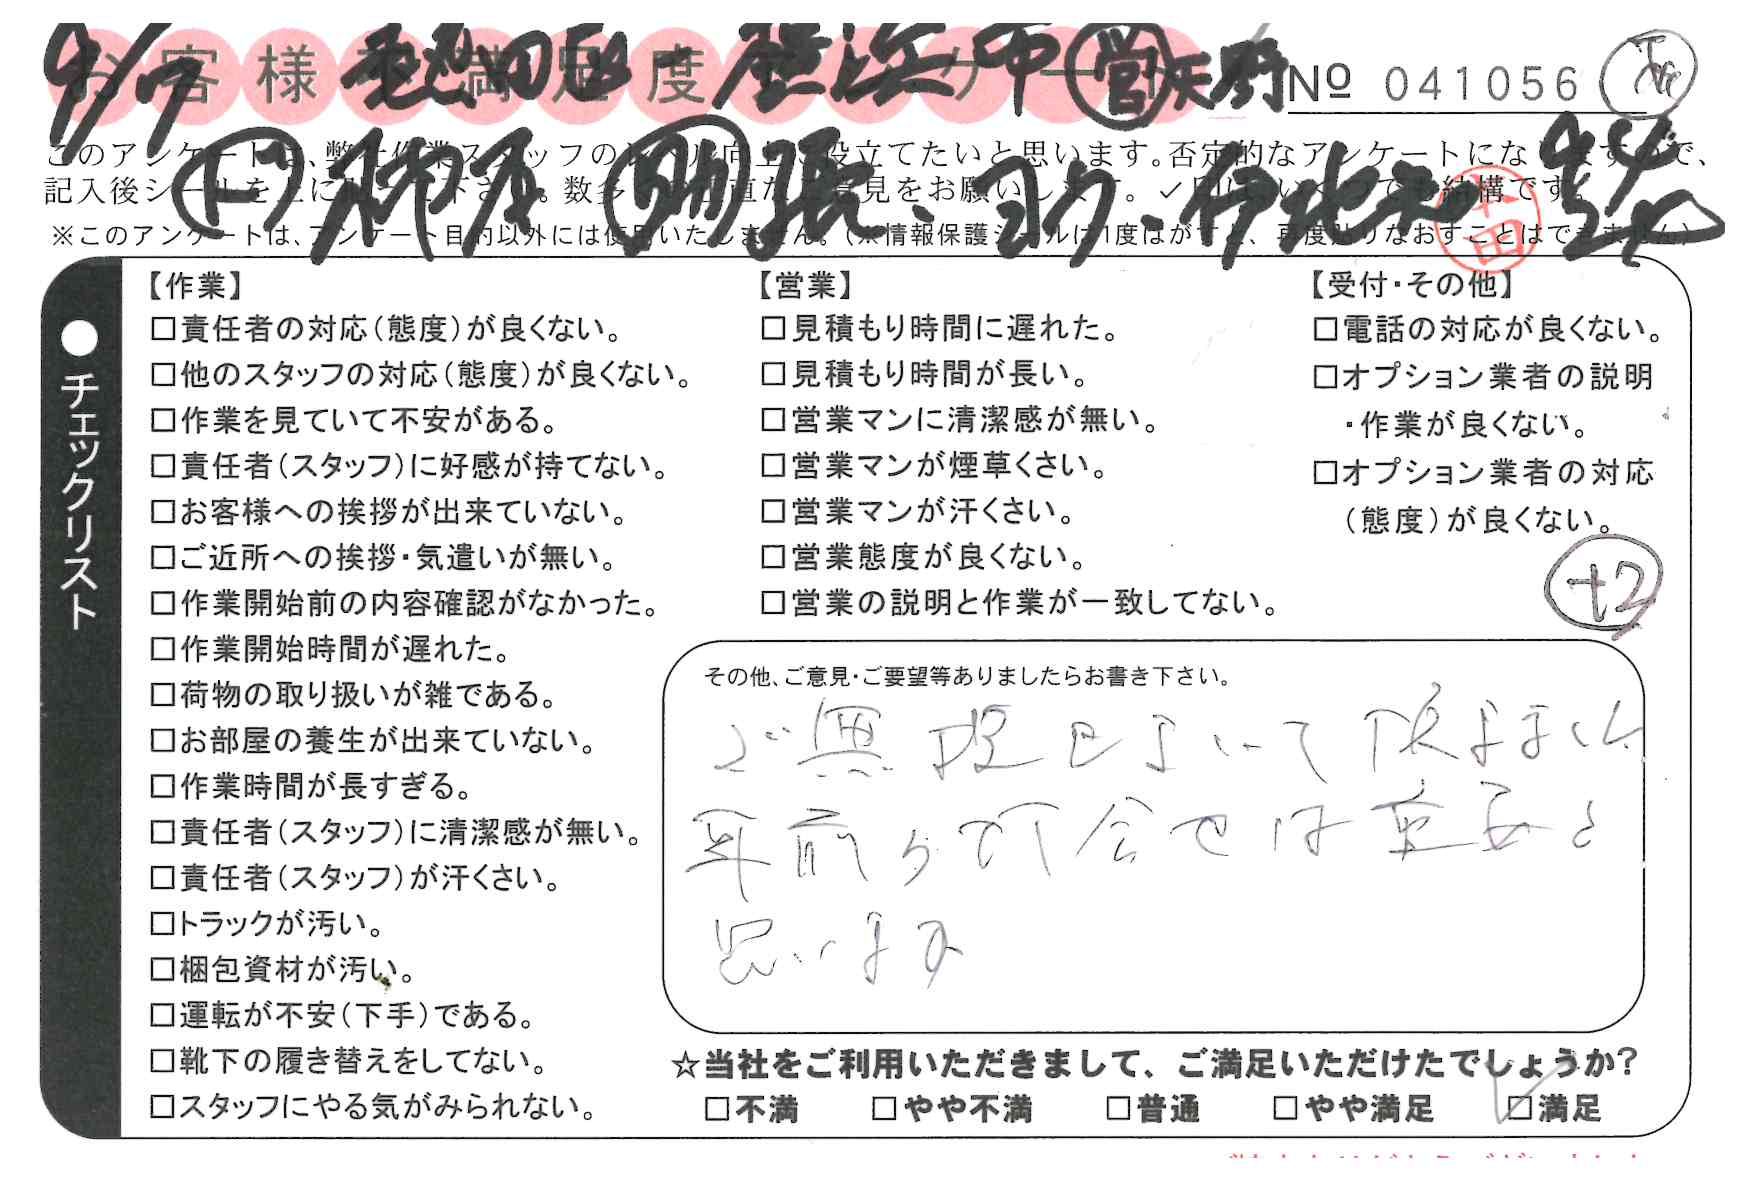 お客様 満足度アンケート
№ 041056
このアンケートは、弊社作業スタッフのレベル向上に役立てたいと思います。否定的なアンケートになりますので、
記入後シールを上に貼って下さい。数多くの正直なご意見をお願いします。✓印は、いくつでも結構です。
※このアンケートは、アンケート目的以外には使用いたしません。(※情報保護シールは1度はがすと、再度貼りなおすことはできません)
9/7 熱田区 横浜中 営 矢野
助
苗
●チェックリスト
【作業】
□責任者の対応(態度)が良くない。
□他のスタッフの対応(態度)が良くない。
□作業を見ていて不安がある。
□責任者(スタッフ)に好感が持てない。
□お客様への挨拶が出来ていない。
□ご近所への挨拶・気遣いが無い。
□作業開始前の内容確認がなかった。
□作業開始時間が遅れた。
□荷物の取り扱いが雑である。
□お部屋の養生が出来ていない。
□作業時間が長すぎる。
□責任者(スタッフ)に清潔感が無い。
□責任者(スタッフ)が汗くさい。
□トラックが汚い。
□梱包資材が汚い。
□運転が不安(下手)である。
□靴下の履き替えをしてない。
□スタッフにやる気がみられない。
【営業】
□見積もり時間に遅れた。
□見積もり時間が長い。
□営業マンに清潔感が無い。
□営業マンが煙草くさい。
□営業マンが汗くさい。
□営業態度が良くない。
□営業の説明と作業が一致してない。
【受付・その他】
□電話の対応が良くない。
□オプション業者の説明
・作業が良くない。
□オプション業者の対応
(態度)が良くない。
+2
その他、ご意見・ご要望等ありましたらお書き下さい。
ご無理をきいて頂きました
事前の打合せは重要と
思います
☆当社をご利用いただきまして、ご満足いただけたでしょうか?
□不満 □やや不満 □普通 □やや満足 ☑満足